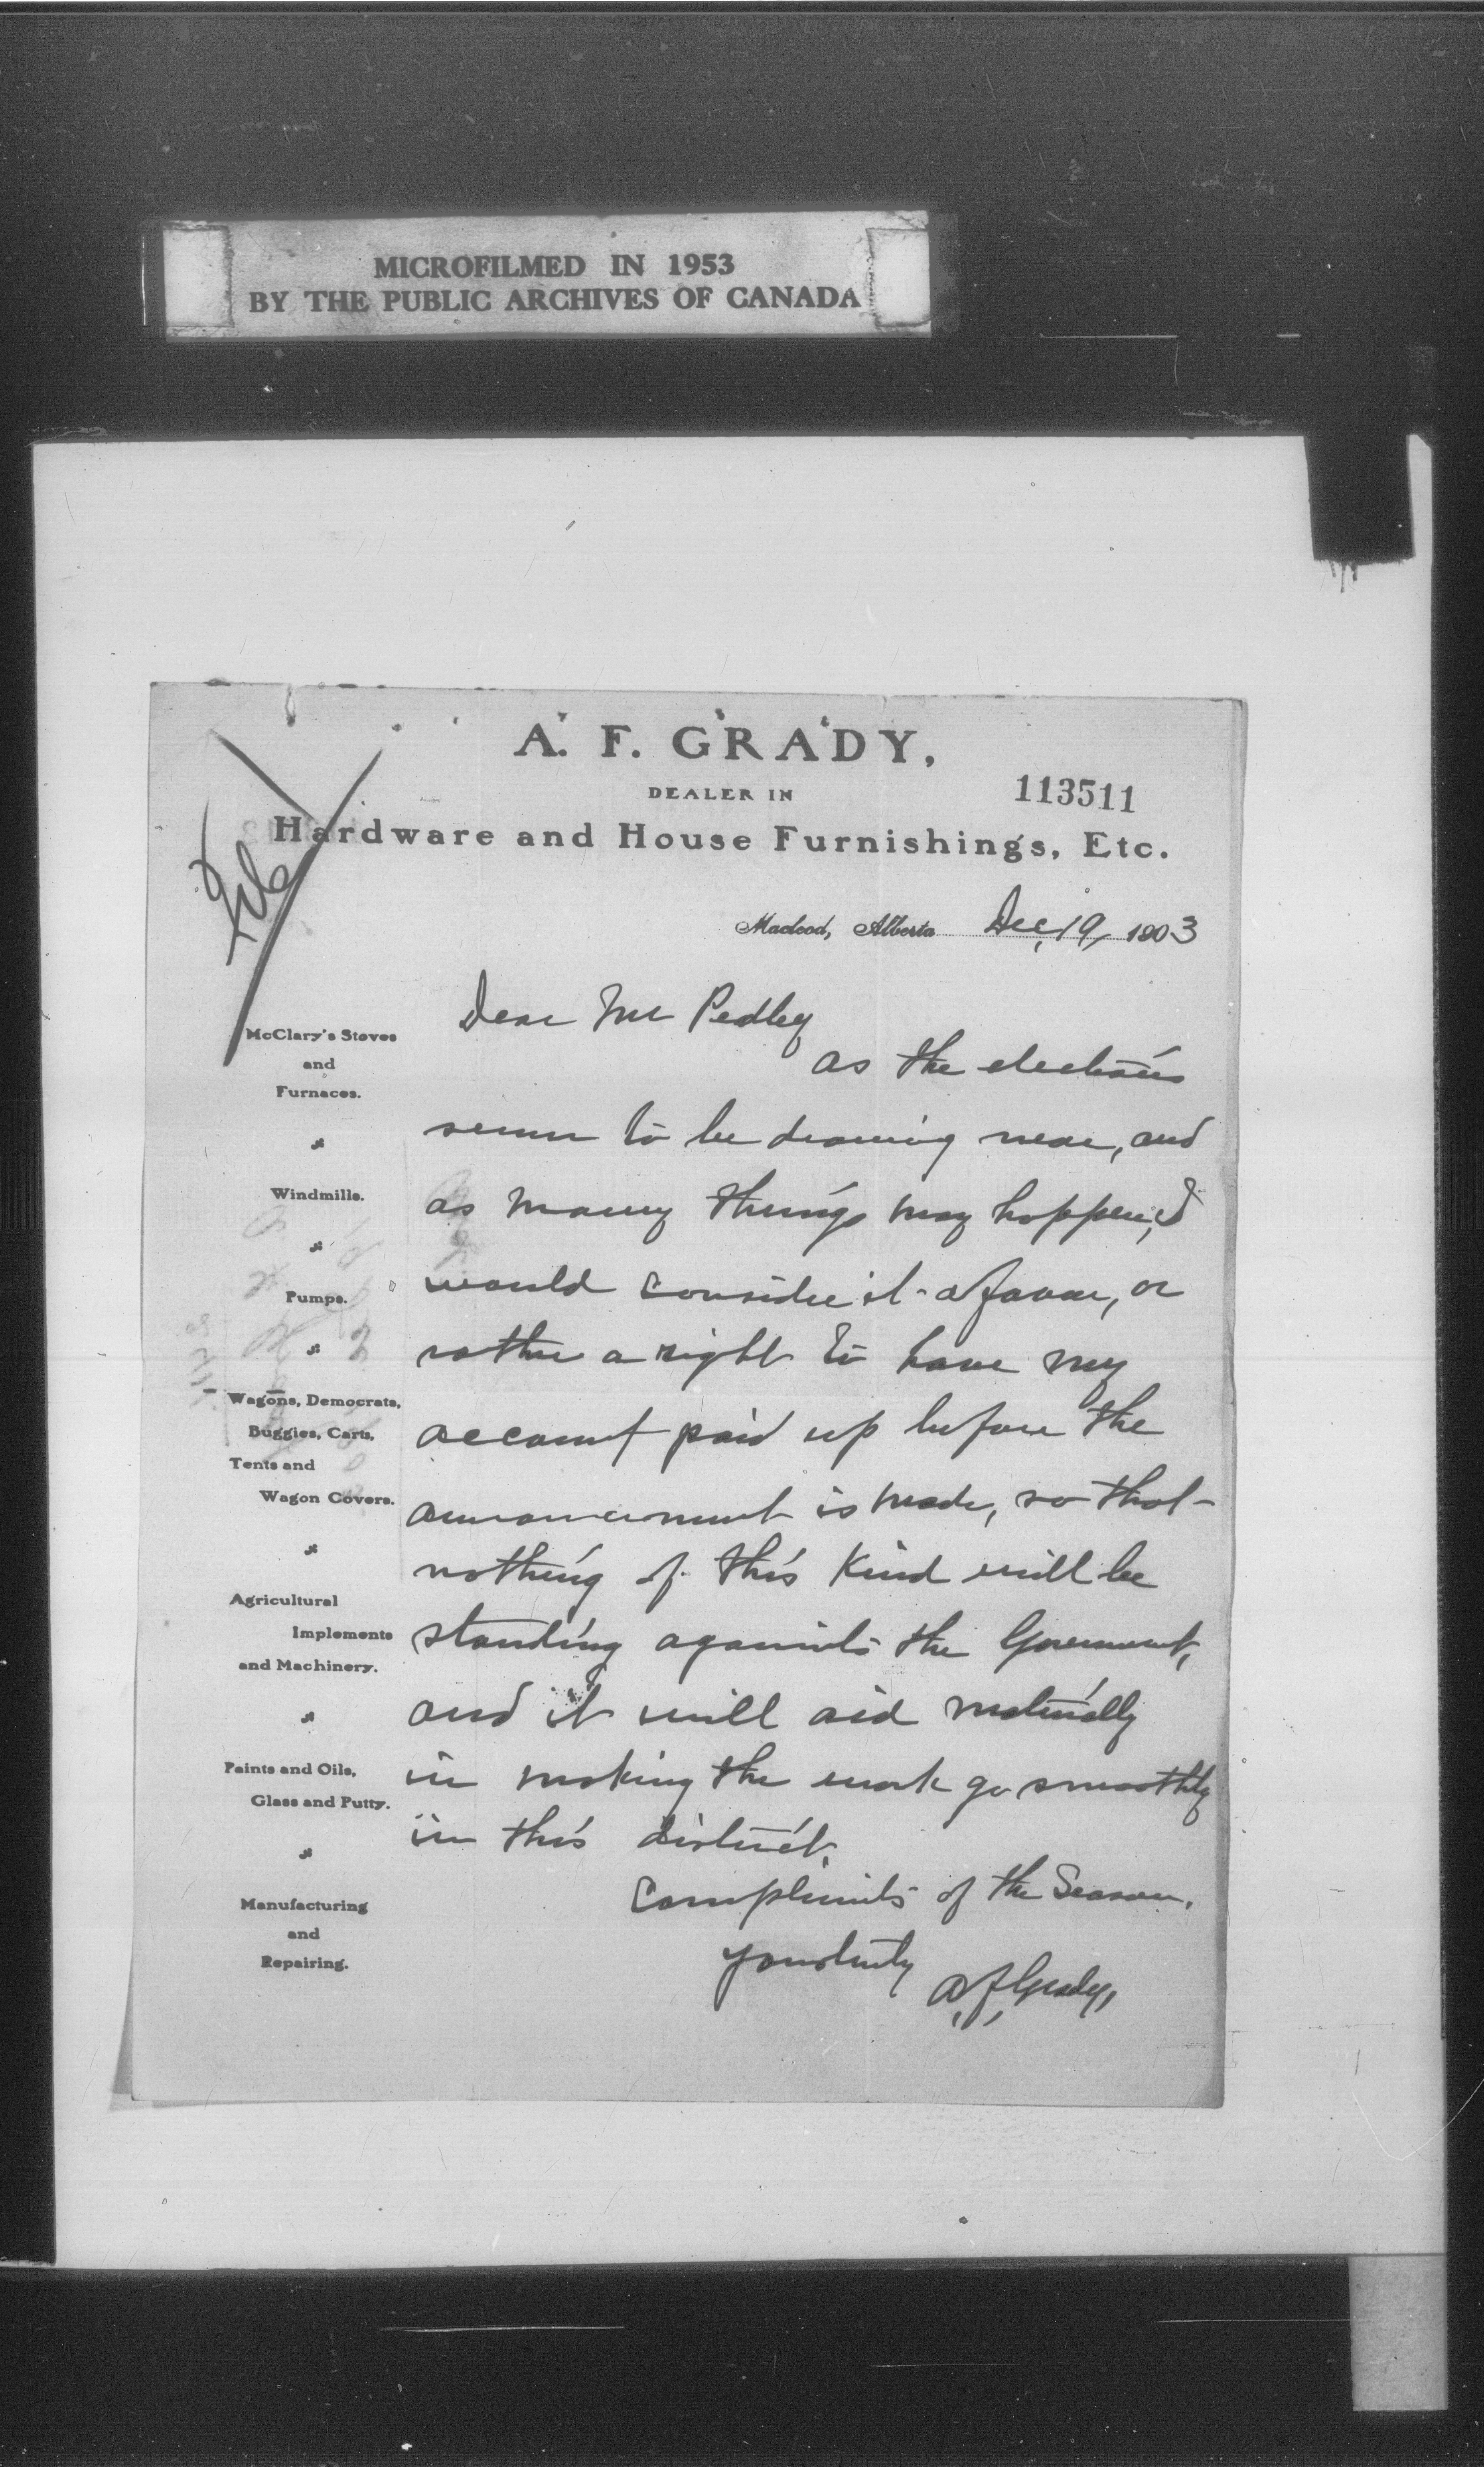 MICROFILMED IN 1953
BY THE PUBLIC ARCHIVES OF CANADA
A. F. GRADY,
DEALER IN
113511
Hardware and House Furnishings, Etc.
File
Macleod, Alberta Dec, 19, 1903
Dear Mr Pedley
as the elections
seem to be drawing near, and
as many things may happen, I
would consider it a favor, or
rather a right to have my
account paid up before the
announcement is made, so that
nothing of this kind will be
standing against the Government,
and it will aid materially
in making the work go smoothly
in this district.
Compliments of the Season.
Yours truly
A, F, Grady,
McClary's Stoves
and
Furnaces.
Windmills.
Pumps.
Wagons, Democrats,
Buggies, Carts,
Tents and
Wagon Covers.
Agricultural
Implements
and Machinery.
Paints and Oils,
Glass and Putty.
Manufacturing
and
Repairing.